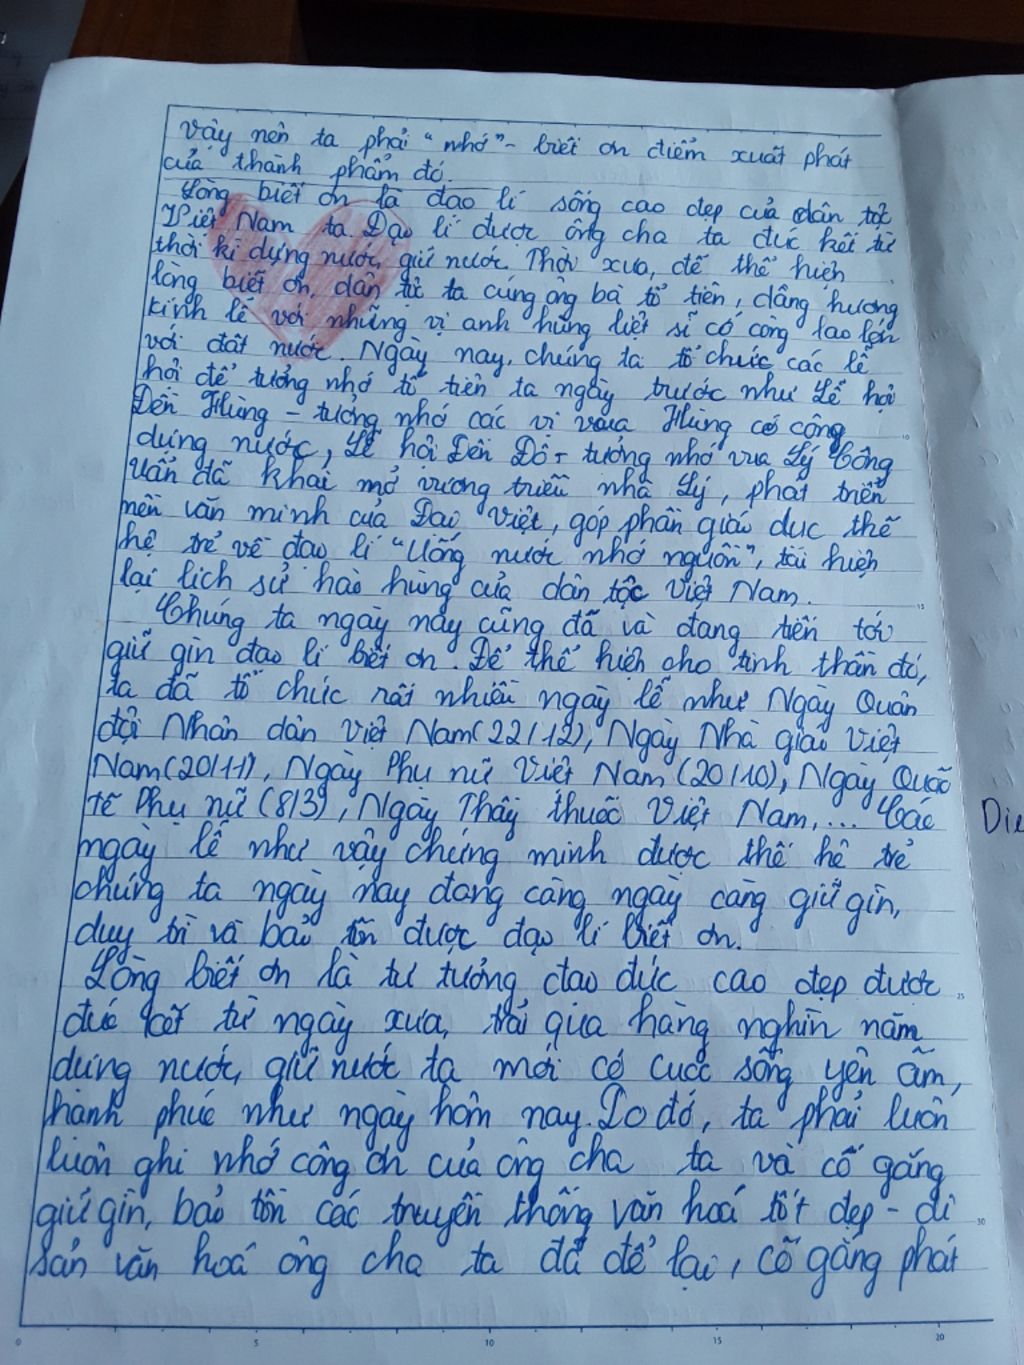 Vậy nên ta phải "nhớ" - biết ơn điểm xuất phát
của thành phẩm đó.
Lòng biết ơn là đạo lí sống cao đẹp của dân tộc
Việt Nam ta. Đạo lí được ông cha ta đúc kết từ
thời kì dựng nước, giữ nước. Thời xưa, để thể hiện
lòng biết ơn, dân tộc ta cúng ông bà tổ tiên, dâng hương
kính lễ với những vị anh hùng liệt sĩ có công lao lớn
với đất nước. Ngày nay, chúng ta tổ chức các lễ
hội để tưởng nhớ tổ tiên ta ngày trước như Lễ hội
Đền Hùng - tưởng nhớ các vị vua Hùng có công
dựng nước, Lễ hội Đền Đô - tưởng nhớ vua Lý Công
Uẩn đã khai mở vương triều nhà Lý, phát triển
nền văn minh của Đại Việt, góp phần giáo dục thế
hệ trẻ về đạo lí "Uống nước nhớ nguồn", tái hiện
lại lịch sử hào hùng của dân tộc Việt Nam.
Chúng ta ngày nay cũng đã và đang tiến tới
giữ gìn đạo lí biết ơn. Để thể hiện cho tinh thần đó,
ta đã tổ chức rất nhiều ngày lễ như Ngày Quân
đội Nhân dân Việt Nam (22/12), Ngày Nhà giáo Việt
Nam (20/11), Ngày Phụ nữ Việt Nam (20/10), Ngày Quốc
tế Phụ nữ (8/3), Ngày Thầy thuốc Việt Nam,... Các
ngày lễ như vậy chứng minh được thế hệ trẻ
chúng ta ngày nay đang càng ngày càng giữ gìn,
duy trì và bảo tồn được đạo lí biết ơn.
Lòng biết ơn là tư tưởng đạo đức cao đẹp được
đúc kết từ ngày xưa, trải qua hàng nghìn năm
dựng nước, giữ nước ta mới có cuộc sống yên ấm,
hạnh phúc như ngày hôm nay. Do đó, ta phải luôn
luôn ghi nhớ công ơn của ông cha ta và cố gắng
giữ gìn, bảo tồn các truyền thống văn hoá tốt đẹp - di
sản văn hoá ông cha ta đã để lại, cố gắng phát